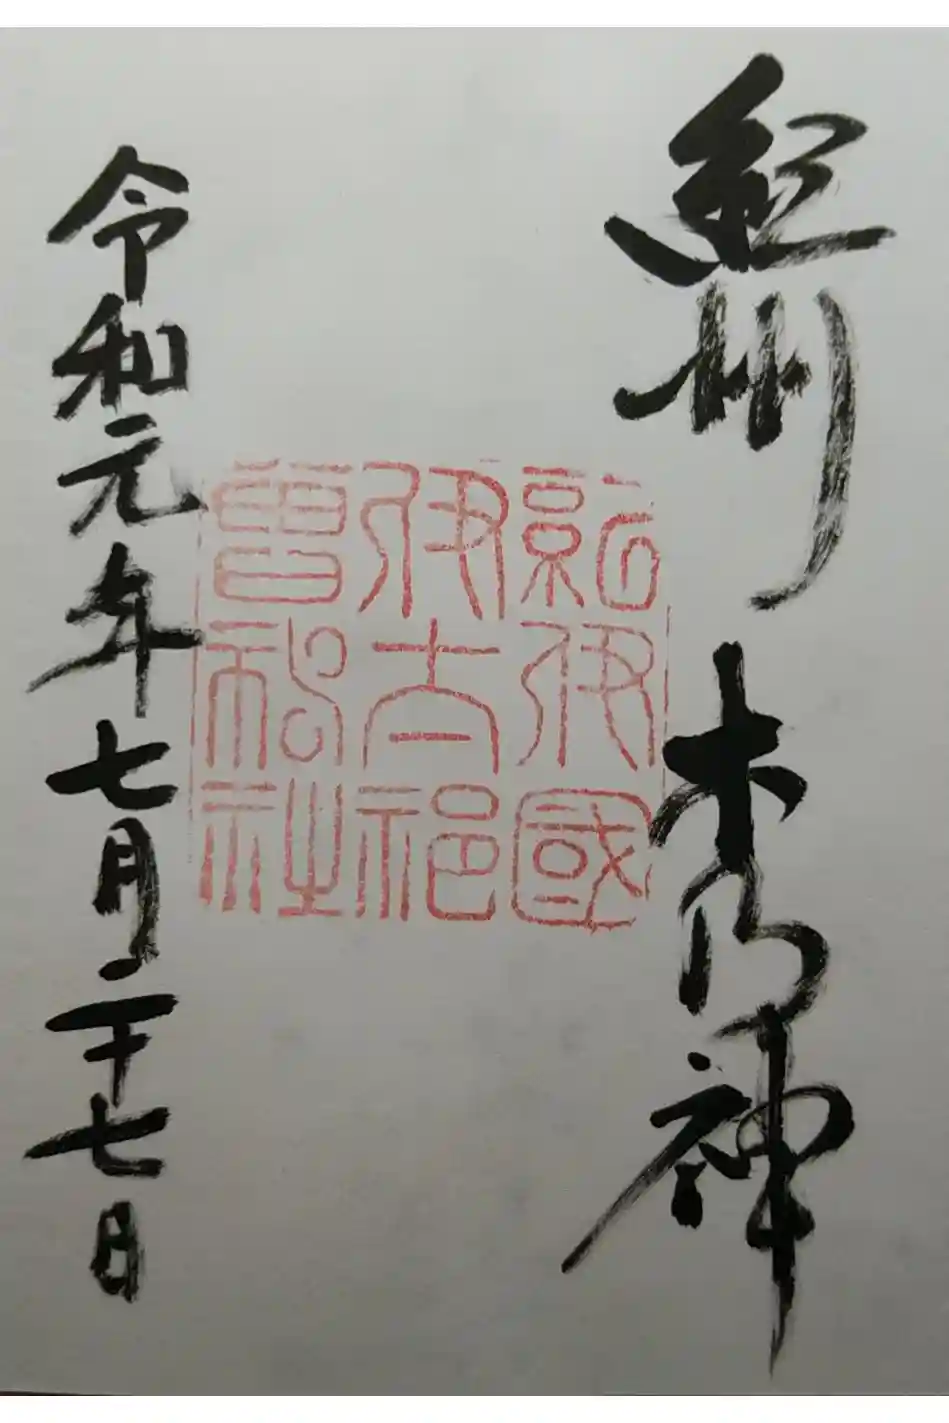 紀州 木の神
紀伊國
伊太祁
曽神社
令和元年七月二十七日